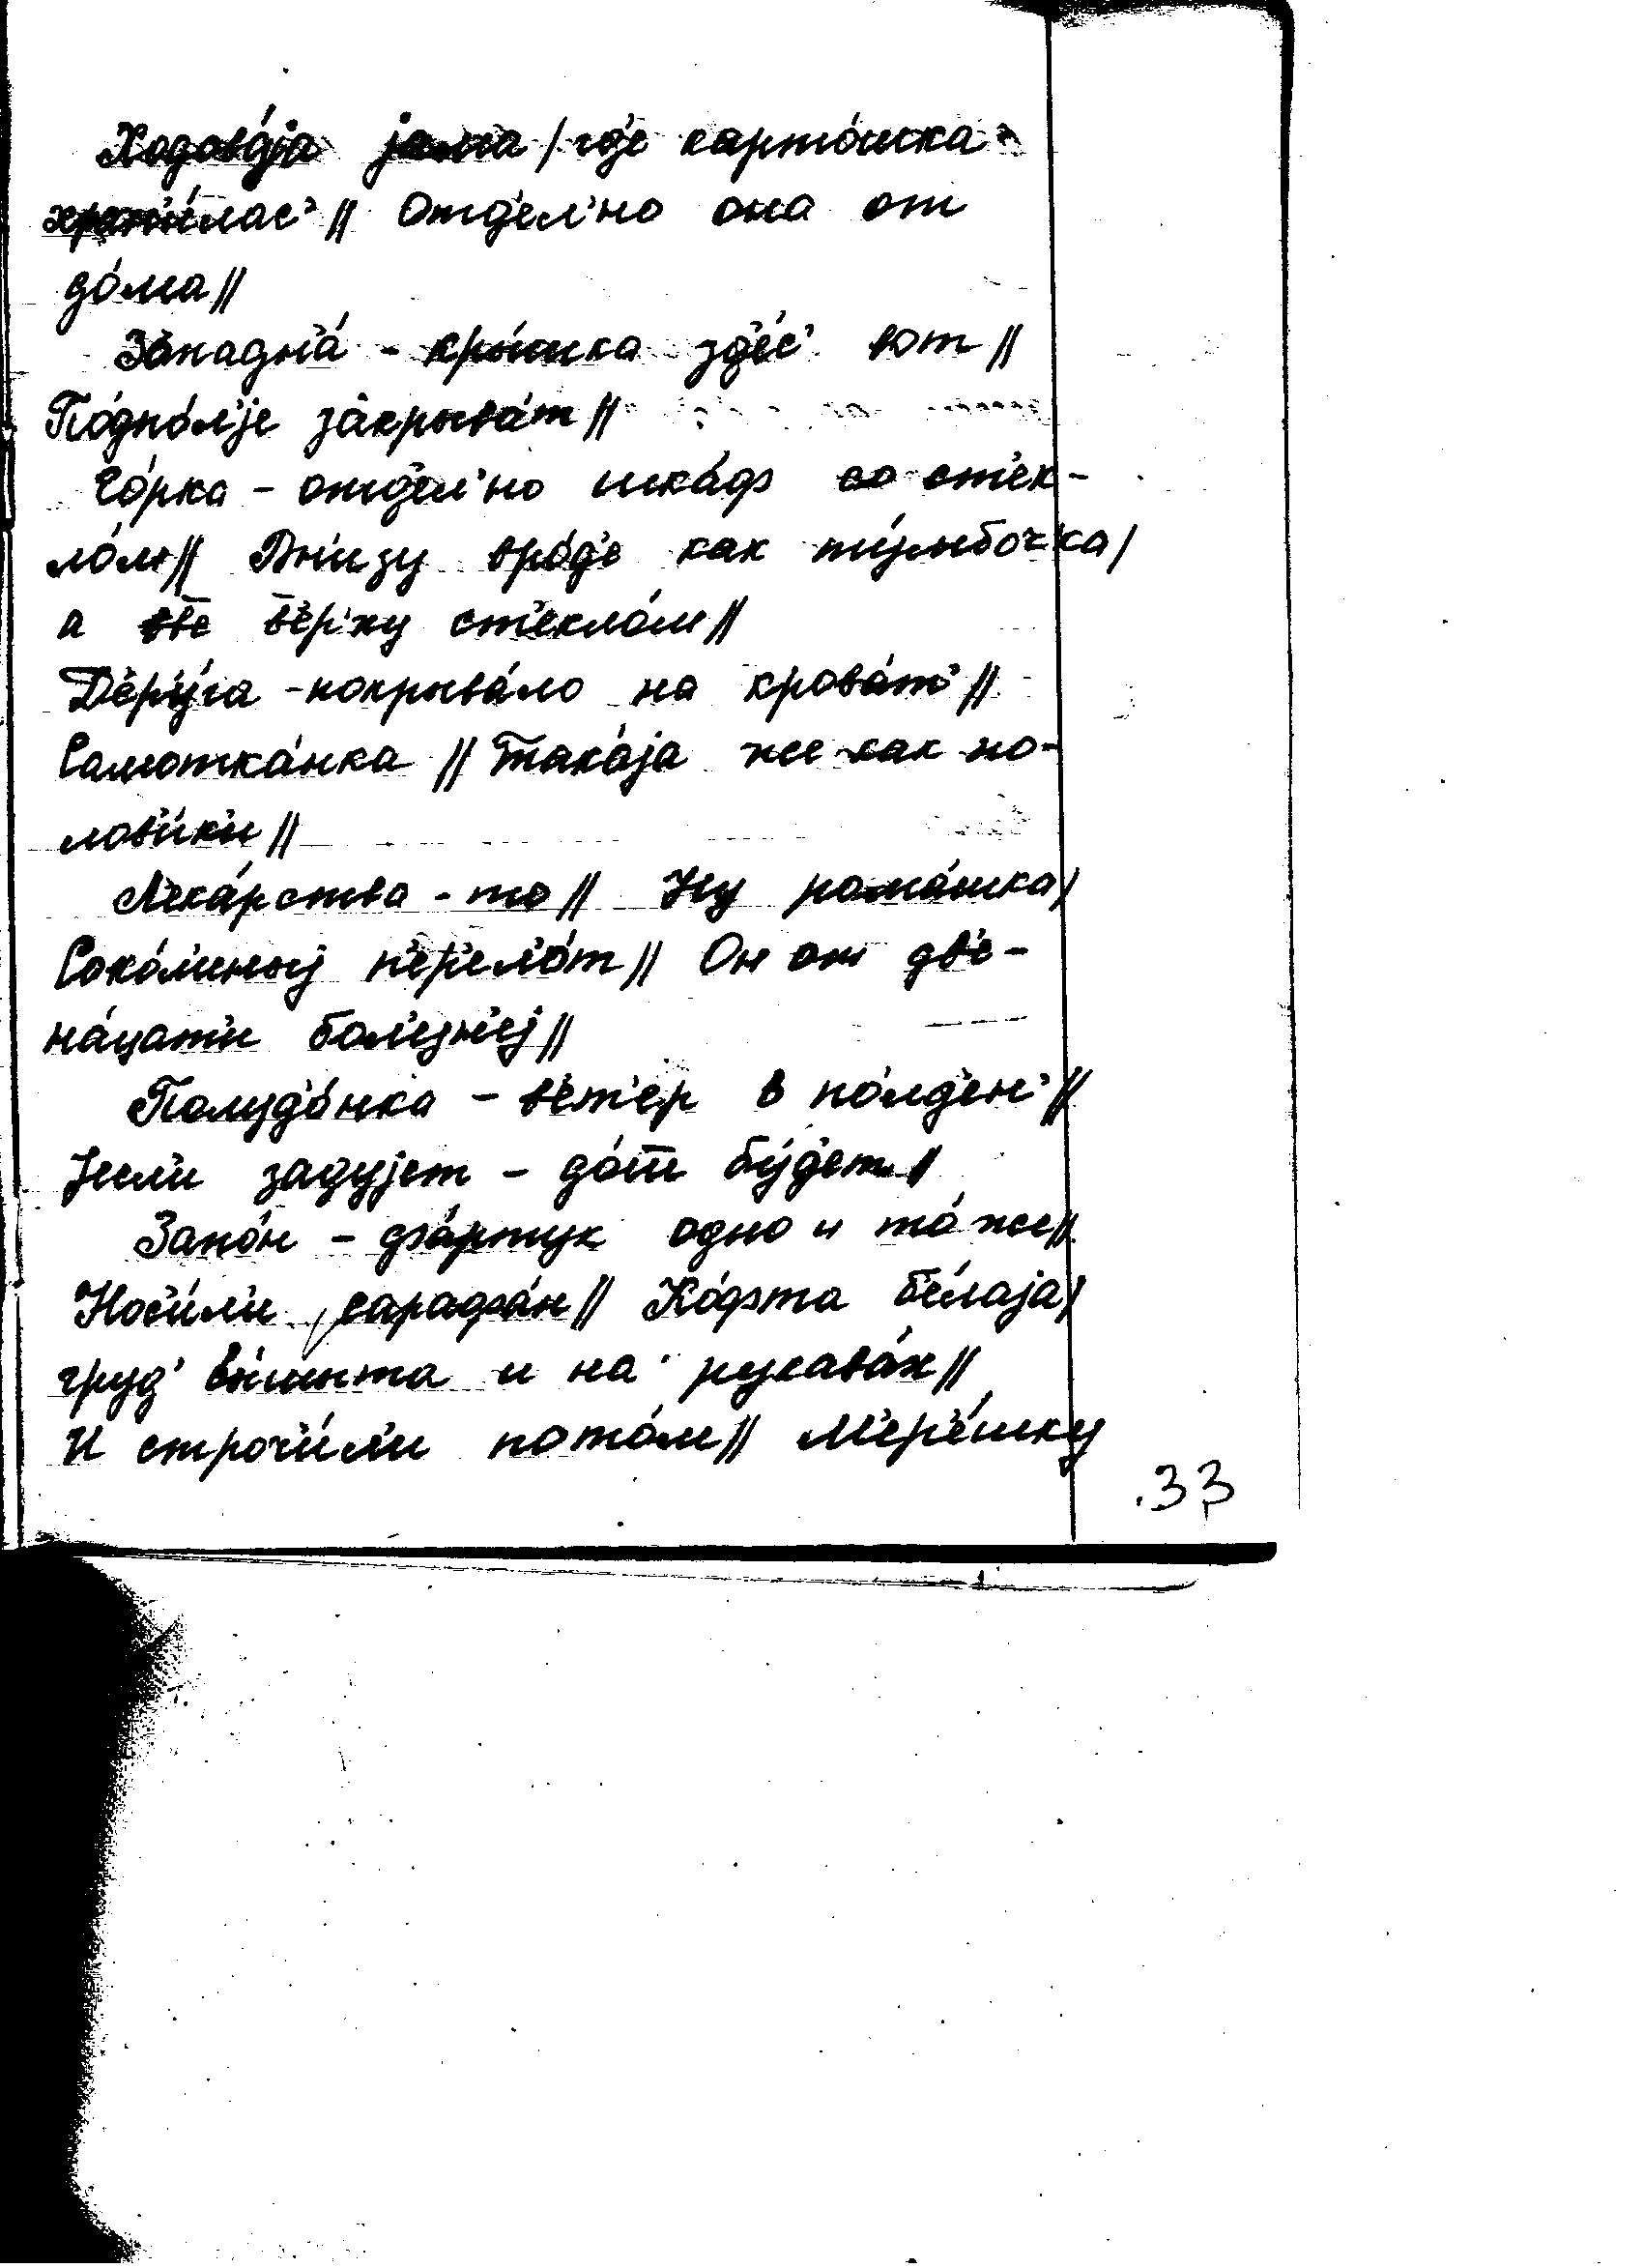 Ходова́jа jама / гд'е карто́шка
хран'и́лас' // Отд'ел'но она от
до́ма //
Западн'а́ - кры́шка зд'е́с' вот //
По́дпо́л'jе закрыва́т //
Го́рка - отд'ел'но шка́ф со ст'ек-
ло́м // Вн'изу вро́д'е как ту́мбочка /
а вв'е в'ерху ст'екло́м //
Д'ер'у́га - покрыва́ло на крова́т' //
Самотка́нка // Така́jа же как по-
лов'ик'и //
Л'ека́рства - то // Ну рома́шка /
Соко́линыj п'ер'ело́т // Он от дв'е-
на́цат'и бол'езн'еj //
Полудо́нка - в'ет'ер в по́лд'ен' //
Jесл'и задуjет - до́ш бу́д'ет //
Запо́н - фа́ртук одно и то́ же //
Нос'и́л'и сарафа́н // Ко́фта б'е́лаjа /
груд' вы́шыта и на рукава́х //
И строч'и́л'и пото́м // М'ер'е́шку
.33